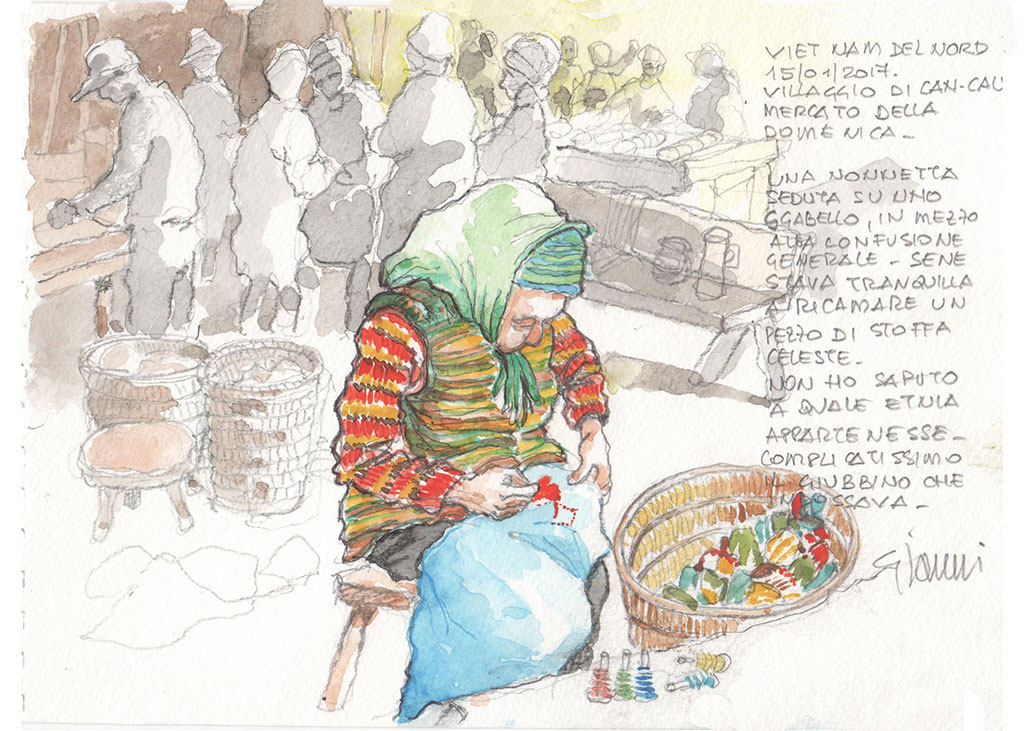 VIET NAM DEL NORD
15/01/2017.
VILLAGGIO DI CAN-CAU
MERCATO DELLA
DOMENICA_
UNA NONNETTA
SEDUTA SU UNO
SGABELLO, IN MEZZO
ALLA CONFUSIONE
GENERALE - SENE
STAVA TRANQUILLA
A RICAMARE UN
PEZZO DI STOFFA
CELESTE_
NON HO SAPUTO
A QUALE ETNIA
APPARTENESSE_
COMPLICATISSIMO
IL GIUBBINO CHE
INDOSSAVA_
Gianni